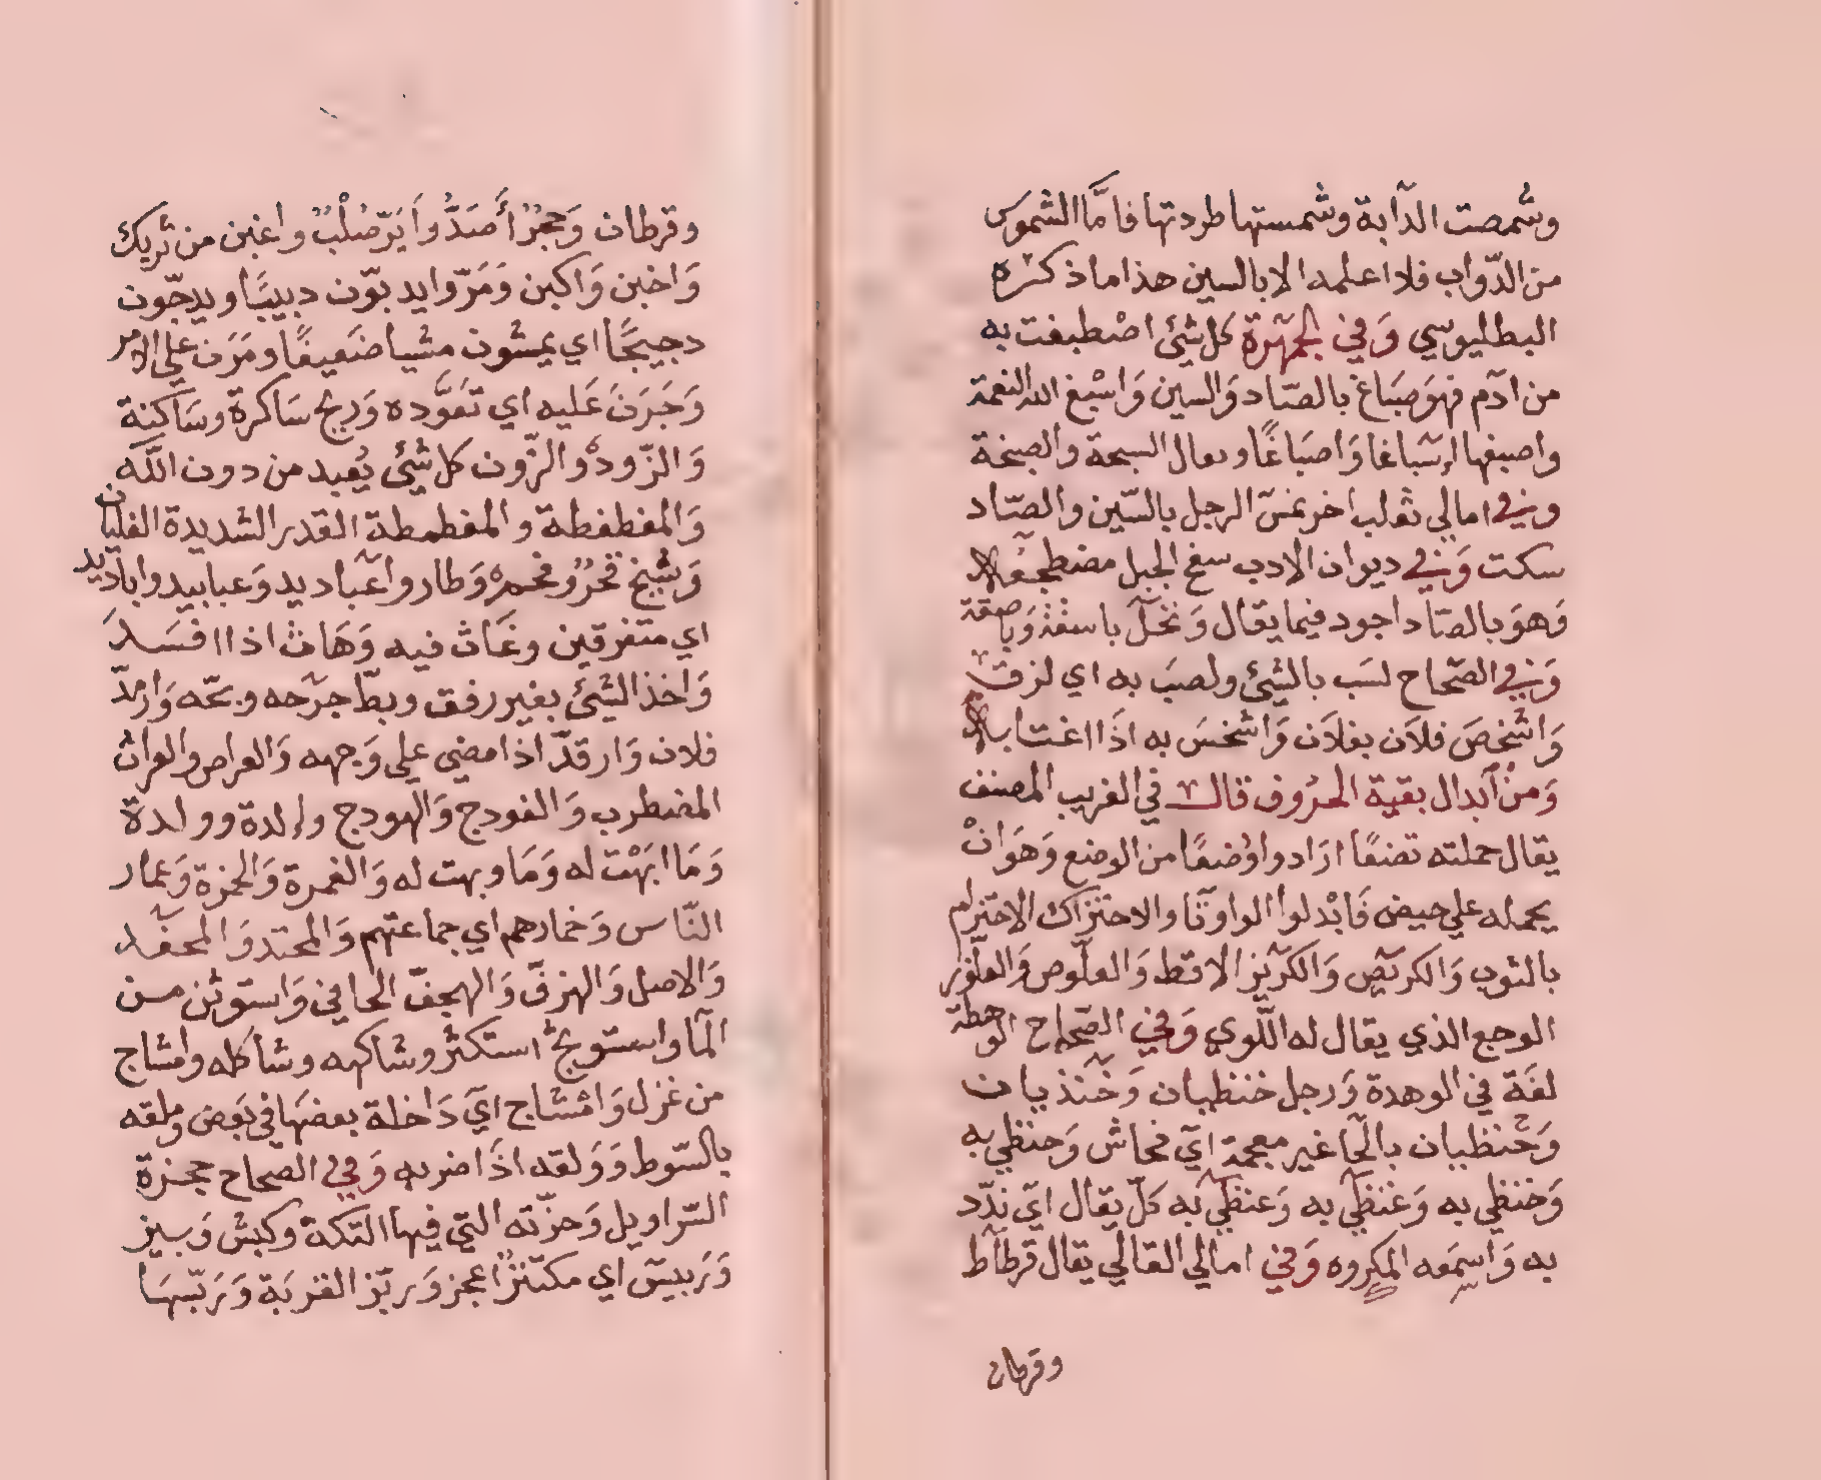 وشمصت الدآبة وشمستها طردتها فامَّا الشموس
من الدّواب فلا اعلمه الا بالسين هذا ما ذكره
البطليوسي وَفي الجمهرة كل شئ اصْطبغت به
من ادَم فهوَ صبَاغ بالصّاد وَالسين وَاسْبغ الله النعمة
واصبغها إسْبَاغا وَاصبَاغًا ويقال السبخة والصبخة
وفي امالي ثعلب اخرنمس الرجل بالسّين والصّاد
سكت وَفي ديوان الادب سفح الجبل مضطجعه
وَهوَ بالصّاد اجود فيما يقال وَنخل باسقة وَباصقة
وَفي الصّحاح لسَب بالشئ ولصبَ به اي لزق
وَاشخصَ فلاَن بفلاَن وَاشخسَ به اذَا اغتابه
وَمن ابدال بقية الحرُوف قال في الغريب المصنف
يقال حملته تضعًا ارَادوا وُضعًا من الوضع وَهوَ انْ
يحمله علي حيض فَابْدلوا الواو تَا والاحتزاك الاحتزام
بالثوب وَالكريص وَالكريز الاقط وَالعلّوص وَالعلّوز
الوجع الذي يقال له اللّوي وَفي الصّحاح الوهطة
لغَة في الوهدة وَرجل خنظيان وَخنذيان
وَحنظيان بالحَا غير معجمة اي فحاش وَحنظي به
وَخنظي به وَغنظي به وَعنظي به كلّ يقال اي ندّد
به وَاسمعَه المكروه وَفي امالي القالي يقال قرطاط
وقرطان
وقرطان وَحجرٌ أصَدُّ وأيرّ صُلْبٌ واغبن من ثوبك
وَاخبن وَاكبن وَمَرّوا يدبّون دبيبًا ويدجّون
دجيجًا اي يمشون مشيا ضَعيفًا ومَرَن علي الامر
وَجَرَنَ عَليه اي تعَوَّده وَريح سَاكرة وسَاكنة
وَالزّور والزّون كل شئ يُعبد من دون اللَّه
وَالمغطغطة والمغطمطة القدر الشديدة الغليان
وَشيخ قحرٌ وقحمٌ وَطاروا عبَاديد وَعبابيد وابَاديد
اي متفرقين وعَاث فيه وَهَاث اذا افسَد
وَاخذ الشئ بغير رفق وبطّ جرْحه وبجّه وَارمدّ
فلان وَارقدّ اذا مضي علي وَجهه وَالعراص والعرات
المضطرب وَالفودج وَالهودج وإلدة وولدة
وَمَا ابَهْت له وَمَا وبهت له وَالغمرة وَالخمرة وَغمار
النّاس وَخمارهم اي جماعتهم وَالمحتد وَالمحفد
وَالاصل وَالهزفّ وَالهجفّ الجافي وَاستوثن من
المَا واستوثج استكثر وشاكهه وشاكله وامشاج
من غزل وَامشاج اي دَاخلة بعضهَا في بَعض وملقه
بالسّوط وَوَلقه اذَا ضربه وَفي الصحاح حجزة
السّراويل وَحزّته التي فيها التكة وكبش وَبيز
وَرَبيس اي مكتنز اعجز وَربّز القربَة وَرَبّسهَا